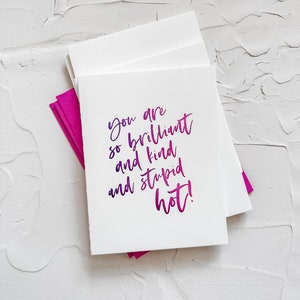 you are
so brilliant
and kind
and stupid
hot!